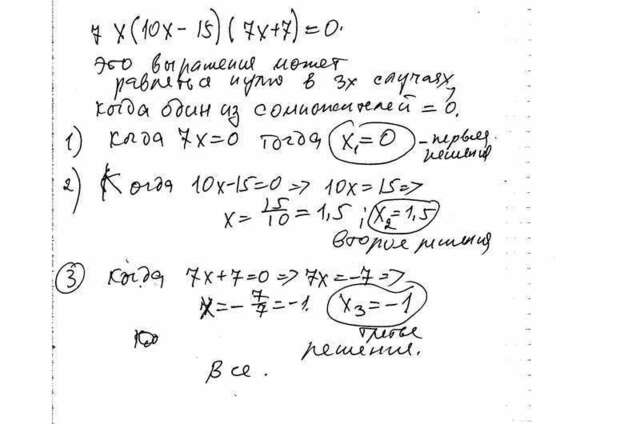 7x(10x-15)(7x+7)=0.
Это выражения может
равняться нулю в 3х случаях,
когда один из сомножителей = 0.
1) Когда 7x=0 тогда x₁=0 - первое
решения
2) Когда 10x-15=0 => 10x=15 =>
x = 15/10 = 1,5 ; x₂=1,5
второе решения
3) Когда 7x+7=0 => 7x=-7 =>
x = -7/7 = -1. x₃=-1
третье
решения.
Все.